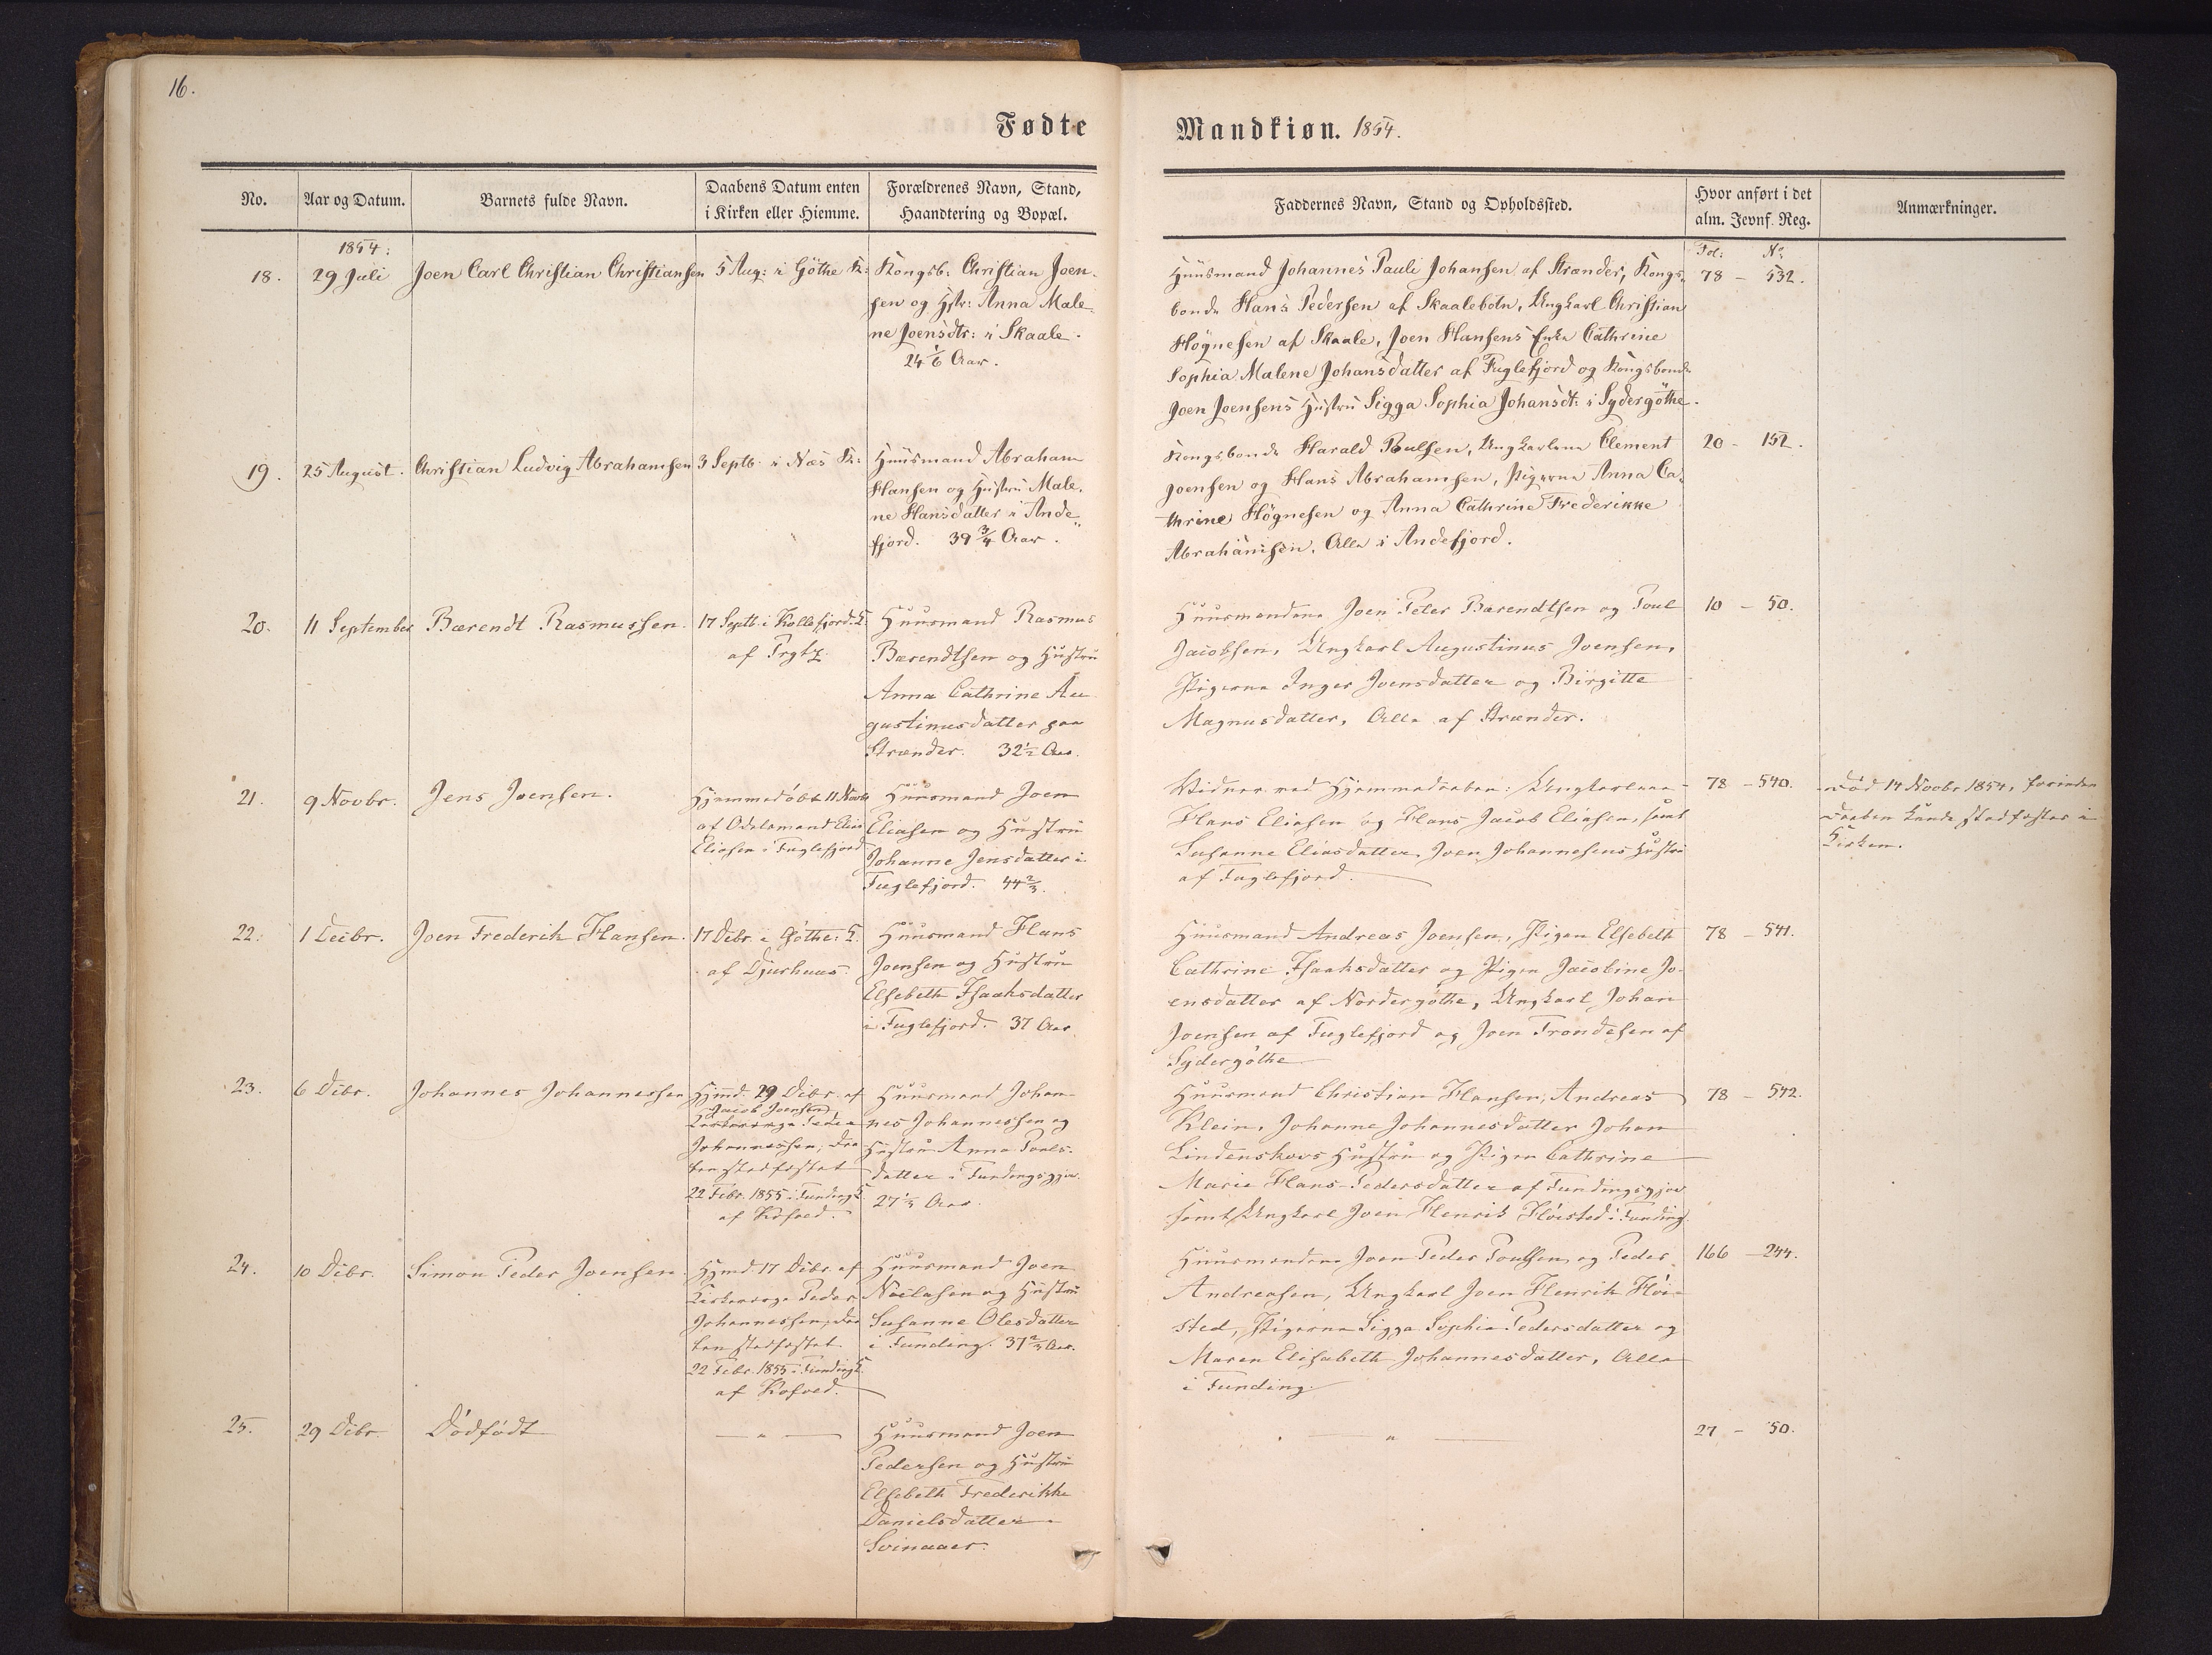 16.
Fødte
Mandkiøn. 1854.
No.
Aar og Datum.
Barnets fulde Navn.
Daabens Datum enten
i Kirken eller Hiemme.
Forældrenes Navn, Stand,
Haandtering og Bopæl.
Faddernes Navn, Stand og Opholdssted.
Hvor anført i det
alm. Jevnf. Reg.
Anmærkninger.
1854:
Fol: No
18.
29 Juli
Joen Carl Christian Christiansen
5 Aug: i Gøthe K:
Kongsb: Christian Joen-
sen og Hstr: Anna Male-
ne Joensdtr: i Skaale.
24 1/6 Aar.
Huusmand Johannes Pauli Johansen af Strænder, Kongs-
bonde Hans Pedersen af Skaalebotn, Ungkarl Christian
Høgnesen af Skaale, Joen Hansens Enke Cathrine
Sophia Malene Johansdatter af Fuglefjord og Kongsbonde
Joen Joensens Hustru Sigga Sophia Johansdt: i Sydergøthe.
78 - 532.
19.
25 August.
Christian Ludvig Abrahamsen
3 Septb. i Næs K:
Huusmand Abraham
Hansen og Hustru Male-
ne Hansdatter i Ande-
fjord. 39 3/4 Aar.
Kongsbonde Harald Poulsen, Ungkarlene Clement
Joensen og Hans Abrahamsen, Pigerne Anna Ca-
thrine Høgnesen og Anna Cathrine Frederikke
Abrahamsen, Alle i Andefjord.
20 - 152.
20.
11 September
Bærendt Rasmussen
17 Septb. i Kollefjord K.
af Trgtz.
Huusmand Rasmus
Bærendtsen og Hustru
Anna Cathrine Au
gustinusdatter paa
Strænder. 32 1/2 Aar.
Huusmændene Joen Peter Bærendtsen og Poul
Jacobsen, Ungkarl Augustinus Joensen,
Pigerne Inger Joensdatter og Birgitte
Magnusdatter, Alle af Strænder.
10 - 50.
21.
9 Novbr.
Jens Joensen.
Hjemmedøbt 11 Novbr
af Odelsmand Elias
Eliasen i Fuglefjord
Huusmand Joen
Eliasen og Hustru
Johanne Jensdatter i
Fuglefjord. 44 2/3.
Vidner ved Hjemmedaaben: Ungkarlene
Hans Eliasen og Hans Jacob Eliasen, samt
Susanne Eliasdatter, Joen Johannesens Hustru
af Fuglefjord.
78 - 540.
død 14 Novbr 1854, forinden
Daaben kunde stadfæstes i
Kirken.
22.
1 Decbr.
Joen Frederik Hansen.
17 Debr. i Gøthe: K.
af Djurhuus.
Huusmand Hans
Joensen og Hustru
Elsebeth Isaaksdatter
i Fuglefjord. 37 Aar.
Huusmand Andreas Joensen, Pigen Elsebeth
Cathrine Isaaksdatter og Pigen Jacobine Jo-
ensdatter af Nordergøthe, Ungkarl Johan
Joensen af Fuglefjord og Joen Trondesen af
Sydergøthe
78 - 541.
23.
6 Debr.
Johannes Johannessen
Hjmd. 29 Debr. af
Jacob Joensen,
Kirkeværge Peder
Johannessen; Daa
ben stadfæstet
22 Febr. 1855 i Funding K.
af Kofoed.
Huusmand Johan-
nes Johannessen og
Hustru Anna Pouls-
datter i Fundingsgjov.
27 1/3 Aar.
Huusmand Christian Hansen, Andreas
Klein, Johanne Johannesdatter Johan
Lindenskovs Hustru og Pigen Cathrine
Marie Hans-Pedersdatter af Fundingsgjov
samt Ungkarl Joen Henrik Høisted i Funding.
78 - 542.
24.
10 Debr.
Simon Peder Joensen
Hjmd. 17 Debr. af
Kirkeværge Peder
Johannessen; Daa
ben stadfæstet
22 Febr. 1855 i Funding K.
af Kofoed.
Huusmand Joen
Nielsen og Hustru
Susanne Olesdatter
i Funding. 37 2/3 Aar.
Huusmændene Joen Peder Poulsen og Peder
Andreasen, Ungkarl Joen Henrik Høi-
sted, Pigerne Sigga Sophia Pedersdatter og
Maren Elisabeth Johannesdatter, Alle
i Funding.
166 - 244.
25.
29 Debr.
Dødfødt
— " —
Huusmand Joen
Pedersen og Hustru
Elsebeth Frederikke
Danielsdatter
Svinaaer.
— " —
27 - 50.